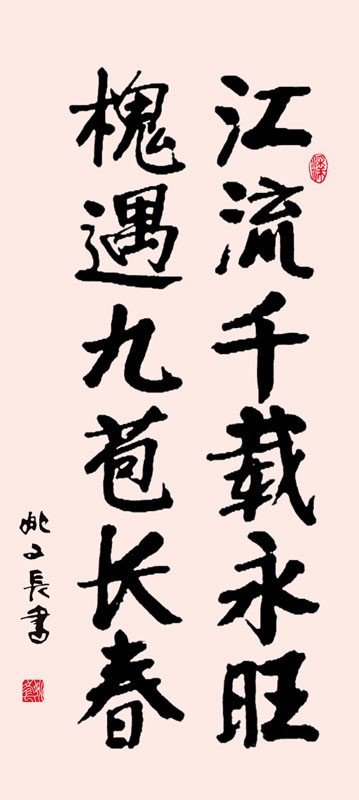 江流千载永旺
槐遇九苞长春
姚文長書